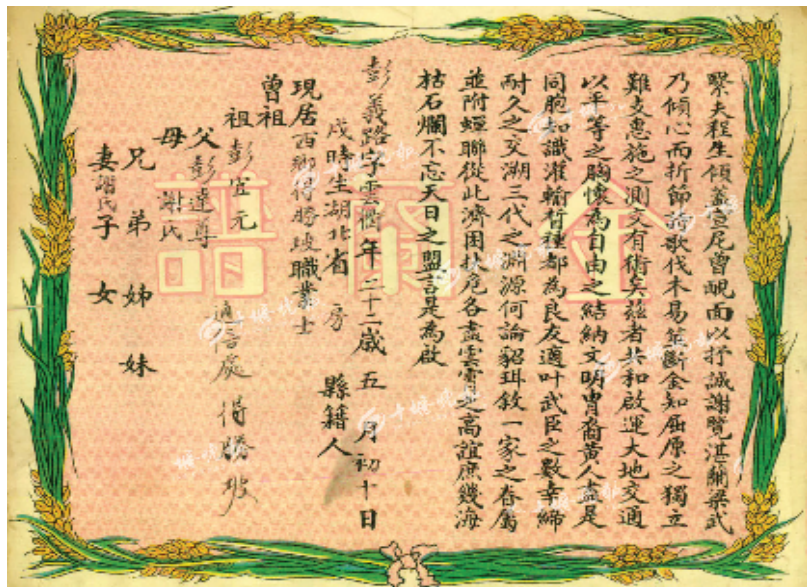 緊夫程生傾蓋宣尼曾覿面以抒誠謝覽湛蘭梁武
乃傾心而折節詩歌伐木易筮斷金知屈原之獨立
難支惠施之測交有術矣茲者共和啟運大地交通
以平等之胸懷為自由之結納文明胄裔黃人盡是
同胞知識灌輸皙種都為良友適叶武臣之數幸締
耐久之交溯三代之淵源何論貂珥敘一家之眷屬
並附蟬聯從此濟困扶危各盡雲霄之高誼庶幾海
枯石爛不忘天日之盟言是為啟
彭義路字雲衢年二十二歲五月初十日
戌時生湖北省 房 縣籍人
現居西鄉得勝坡職業士
曾祖
祖彭宜元
父彭達尊 通信處 得勝坡
母謝氏
兄弟姊妹
妻謝氏子女
金蘭譜